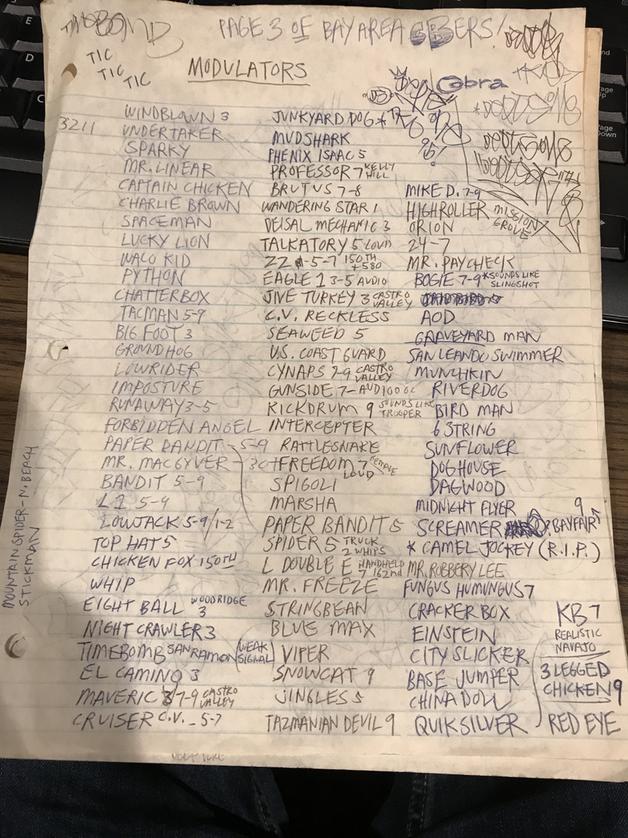 PAGE 3 OF BAY AREA CBERS!
TIC
TIC
TIC
MODULATORS
Cobra
3211
WINDBLOWN 3
UNDERTAKER
SPARKY
MR. LINEAR
CAPTAIN CHICKEN
CHARLIE BROWN
SPACEMAN
LUCKY LION
WACO KID
PYTHON
CHATTERBOX
TACMAN 5-9
BIG FOOT 3
GROUND HOG
LOWRIDER
IMPOSTURE
RUNAWAY 3-5
FORBIDDEN ANGEL
PAPER BANDIT - 5-9
MR. MACGYVER
BANDIT 5-9
L1 5-9
LOWJACK 5-9/1-2
TOP HAT 5
CHICKEN FOX 150TH
WHIP
EIGHT BALL WOODRIDGE 3
NIGHT CRAWLER 3
TIMEBOMB SAN RAMON (WEAK SIGNAL)
EL CAMINO 3
MAVERIC 7-9 CASTRO VALLEY
CRUISER C.V. - 5-7
JUNKYARD DOG
MUDSHARK
PHENIX ISAAC 5
PROFESSOR 7 KELLY HILL
BRUTUS 7-8
WANDERING STAR 1
DEISAL MECHANIC 3
TALKATORY 5 LOUD
ZZ 5-7 150TH + 580
EAGLE 1 3-5 AUDIO
JIVE TURKEY 3 CASTRO VALLEY
C.V. RECKLESS
SEAWEED 5
U.S. COAST GUARD
CYNAPS 7-9 CASTRO VALLEY
GUNSIDE 7-
KICKDRUM 9 SOUNDS LIKE TROOPER
INTERCEPTER
RATTLESNAKE
FREEDOM 7 FEMALE LOUD
SPIGOLI
MARSHA
PAPER BANDIT 5
SPIDER 5 TRUCK 2 WHIPS
L DOUBLE E HANDHELD 7 162nd
MR. FREEZE
STRINGBEAN
BLUE MAX
VIPER
SNOWCAT 9
JINGLES 5
TAZMANIAN DEVIL 9
MIKE D. 7-9
HIGHROLLER MISSION GROVE
ORION
24-7
MR. PAYCHECK
BOGIE 7-9 *SOUNDS LIKE SLINGSHOT
AOD
GRAVEYARD MAN
SAN LEANDO SWIMMER
MUNCHKIN
RIVERDOG
BIRD MAN
6 STRING
SUNFLOWER
DOGHOUSE
DAGWOOD
MIDNIGHT FLYER
SCREAMER 9 BAYFAIR
* CAMEL JOCKEY (R.I.P.)
MR. ROBBERY LEE
FUNGUS HUMUNGUS 7
CRACKER BOX
EINSTEIN
CITY SLICKER
BASE JUMPER
CHINA DOLL
QUIKSILVER
KB 7
REALISTIC
NAVAJO
3 LEGGED
CHICKEN 9
RED EYE
MOUNTAIN SPIDER - N. BEACH
STICKMAN